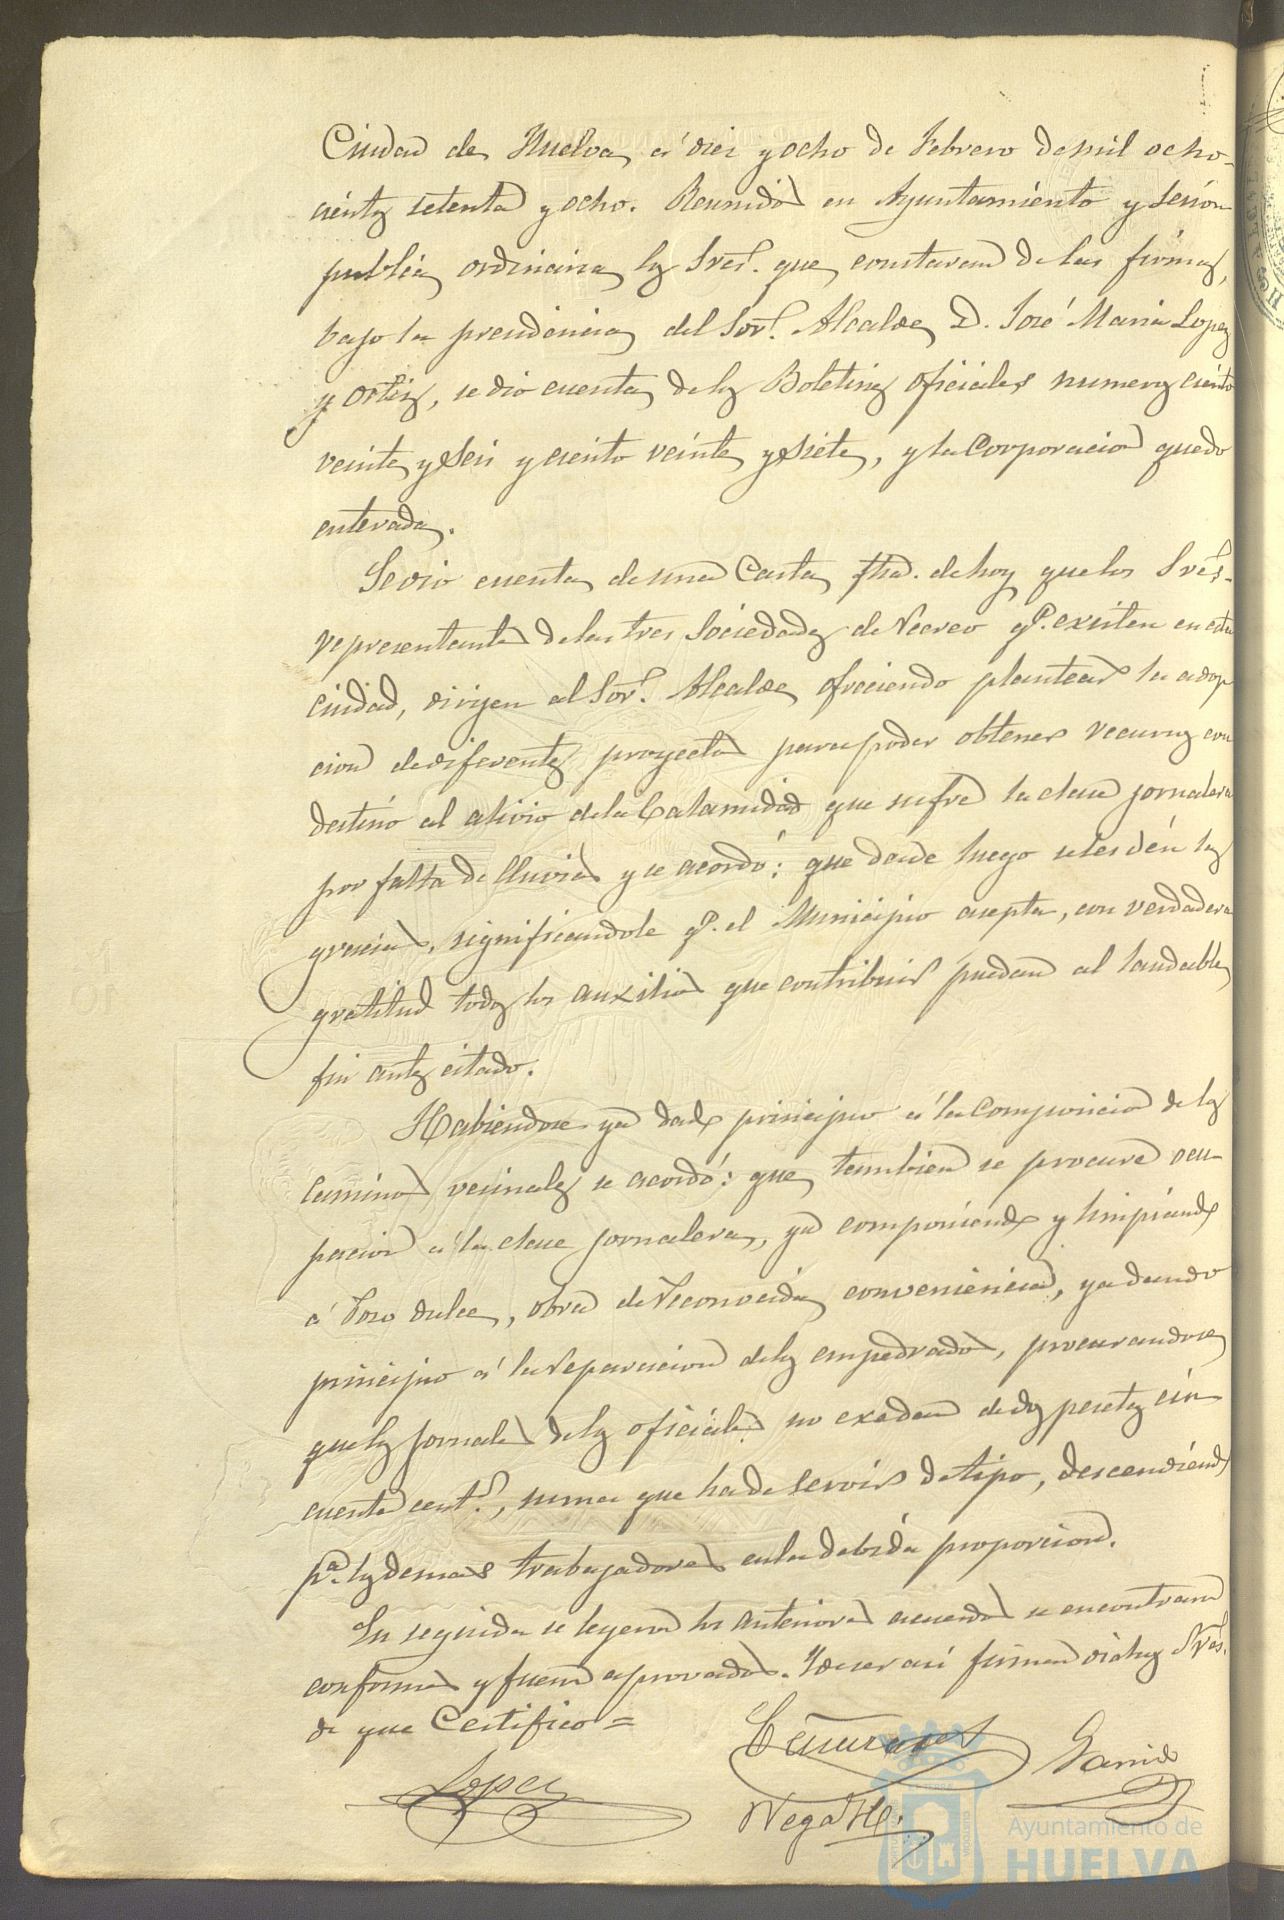 Ciudad de Huelva, á diez y ocho de Febrero de mil ocho-
cientos setenta y ocho. Reunidos en Ayuntamiento y Sesion
publica ordinaria los Sres. que constaran de las firmas,
bajo la presidencia del Sor. Alcalde D. José Maria Lopez
y Ortiz, se dio cuenta de los Boletines oficiales numeros ciento
veinte y seis y ciento veinte y siete, y la Corporacion quedó
enterada.
Se dio cuenta de una Carta fha. de hoy que los Sres.
representantes de las tres Sociedades de Recreo qe. existen en esta
ciudad, dirijen al Sor. Alcalde, ofreciendo plantear la adop
cion de diferentes proyectos para poder obtener recursos con
destino al alivio de la Calamidad que sufre la clase jornalera
por falta de lluvias y se acordó: que desde luego se les dén las
gracias, significandole qe. el Municipio acepta, con verdadera
gratitud todos los auxilios que contribuir puedan al laudable
fin antes citado.
Habiendose ya dado principio á la Composicion de los
Caminos vecinales se acordó: que tambien se procure ocu-
pacion á la clase jornalera, ya componiendo y limpiando
á Pozo dulce, obra de reconocida conveniencia, ya dando
principio á la reparacion de los empedrados, procurandose
que los jornales de los oficiales no exedan de dos pesetas cin
cuenta cent.s, suma que ha de servir de tipo, descendiendo
pa. los demas trabajadores en la debida proporcion.
En seguida se leyeron los anteriores acuerdos se encontraron
conformes y fueron aprovados. Y de ser asi firman dichos Sres.
de que Certifico =
Lopez
Garrido
Vega H.
Ayuntamiento de
HUELVA